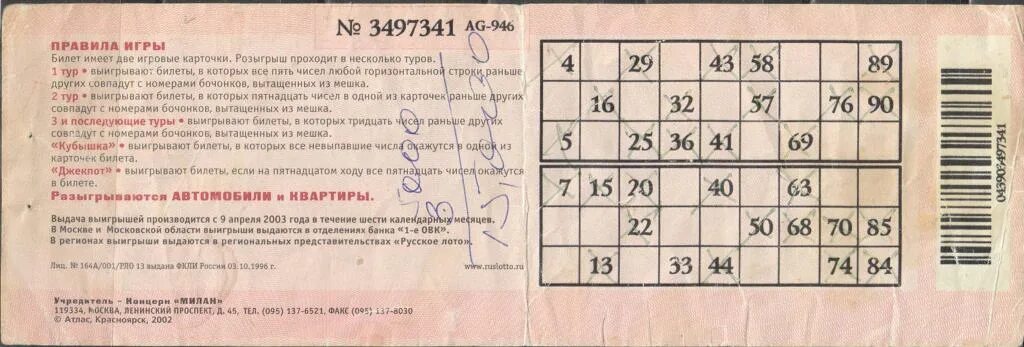 № 3497341 AG-946
ПРАВИЛА ИГРЫ
Билет имеет две игровые карточки. Розыгрыш проходит в несколько туров.
1 тур • выигрывают билеты, в которых все пять чисел любой горизонтальной строки раньше
других совпадут с номерами бочонков, вытащенных из мешка.
2 тур • выигрывают билеты, в которых пятнадцать чисел в одной из карточек раньше других
совпадут с номерами бочонков, вытащенных из мешка.
3 и последующие туры • выигрывают билеты, в которых тридцать чисел раньше других
совпадут с номерами бочонков, вытащенных из мешка.
«Кубышка» • выигрывают билеты, в которых все невыпавшие числа окажутся в одной из
карточек билета.
«Джекпот» • выигрывают билеты, если на пятнадцатом ходу все пятнадцать чисел окажутся
в билете.
Разыгрываются АВТОМОБИЛИ и КВАРТИРЫ.
Выдача выигрышей производится с 9 апреля 2003 года в течение шести календарных месяцев.
В Москве и Московской области выигрыши выдаются в отделениях банка "1-е ОВК".
В регионах выигрыши выдаются в региональных представительствах «Русское лото».
Лиц. № 164А/001/РЛО 13 выдана ФКЛИ России 03.10.1996 г. www.ruslotto.ru
Учредитель - Концерн «МИЛАН»
119334, МОСКВА, ЛЕНИНСКИЙ ПРОСПЕКТ, Д. 45, ТЕЛ. (095) 137-6521, ФАКС (095) 137-8030
© Атлас, Красноярск, 2002
4 29 43 58 89
16 32 57 76 90
5 25 36 41 69
7 15 20 40 63
22 50 68 70 85
13 33 44 74 84
043903497341